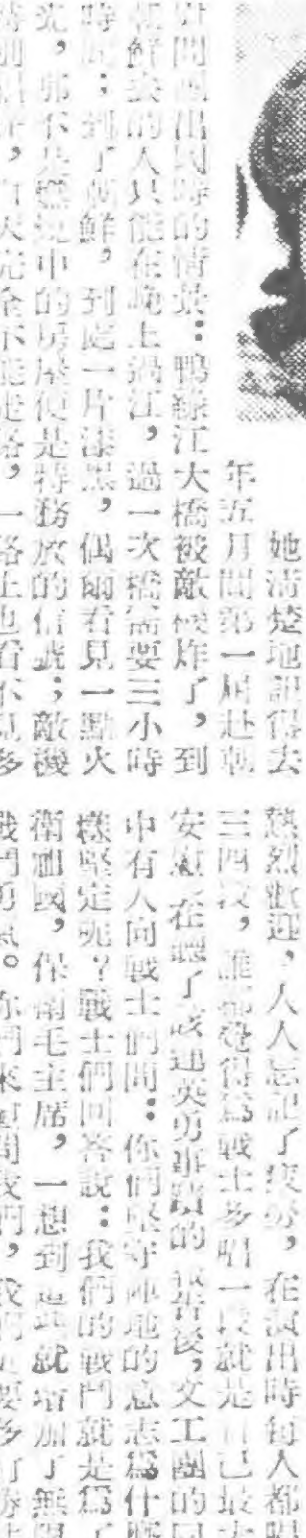 她清楚地記得去
年五月間第一屆赴朝
慰問團出國時的情景：鴨綠江大橋被敵機炸了，到
朝鮮去的人只能在晚上過江，過一次橋需要三小時
時間：到了朝鮮，到處一片漆黑，偶爾看見一點火
光，那不是燃燒中的房屋便是特務放的信號；敵機
白天完全不能走路，一路上也看不見多
熱烈歡迎，人人忘記了疲勞，在演出時每人都唱
三四段，誰都覺得爲戰士多唱一段就是自己最大
安慰在聽了該連英勇事蹟的報告後，文工團的同
中有人向戰士們問：你們堅守陣地的意志爲什麼
樣堅定呢？戰士們回答說：我們的戰鬥就是爲了
衛祖國，保衛毛主席，一想到這些就增加了無限
戰鬥勇氣。你們來慰問我們，我們更要多打勝